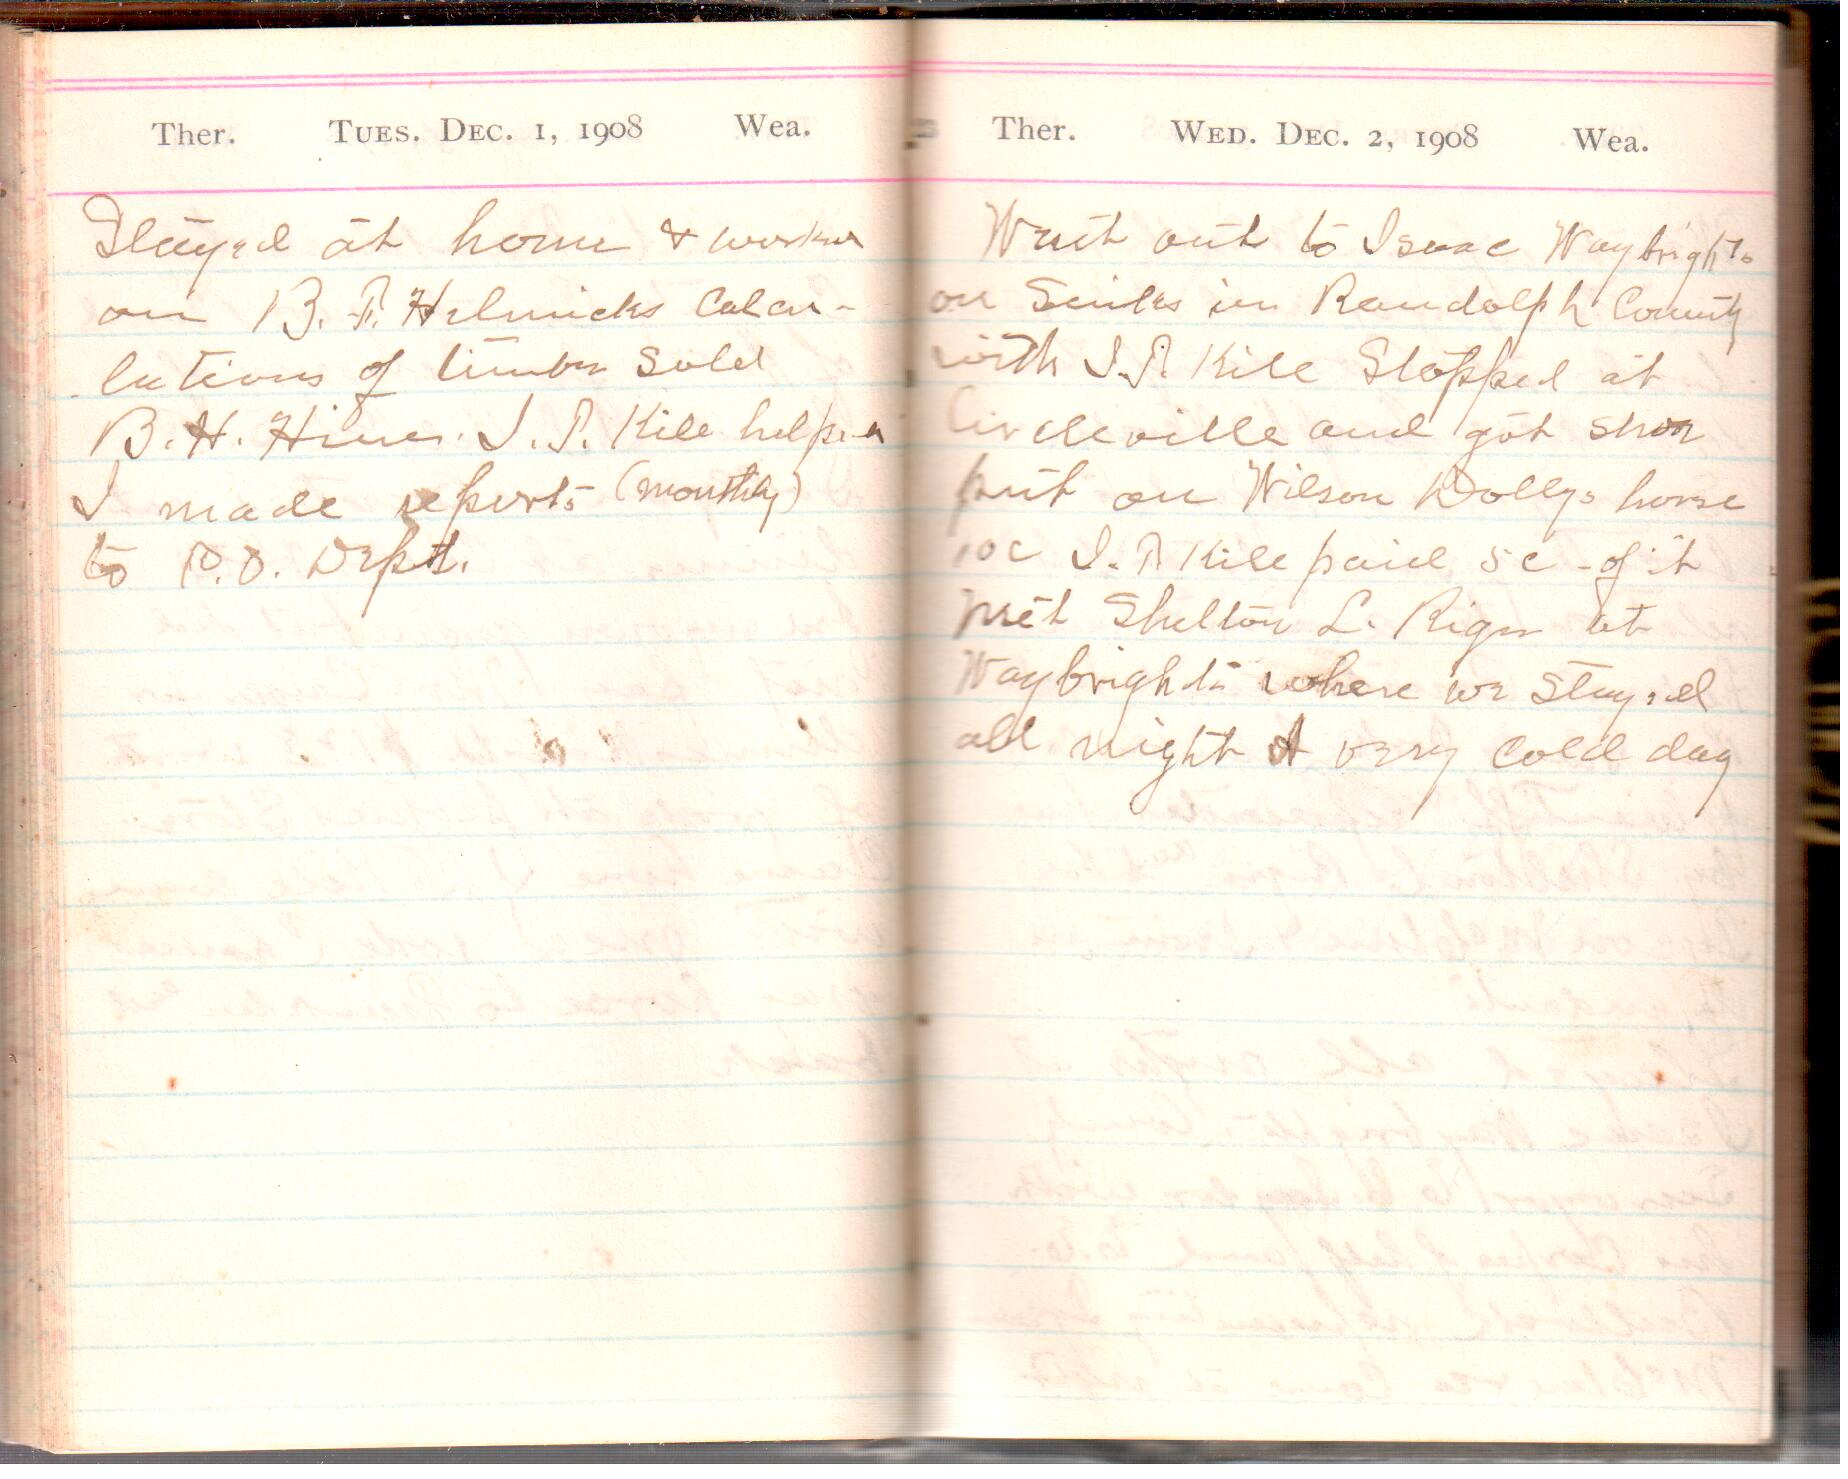 Ther. TUES. DEC. 1, 1908 Wea.
Stayed at home & worked
on B. F. Helmicks Calcu-
lations of timber sold
B. H. Hiner. I. P. Kile helped
I made reports (monthly)
to P. O. Dept.
Ther. WED. DEC. 2, 1908 Wea.
Went out to Isaac Waybrights
on Seniks in Randolph County
with I. P. Kile Stopped at
Circleville and got shoe
put on Wilson Dollys horse
10c I. P. Kile paid 5c of it
Met Shelton L. Riger at
Waybrights where we stayed
all night A very cold day